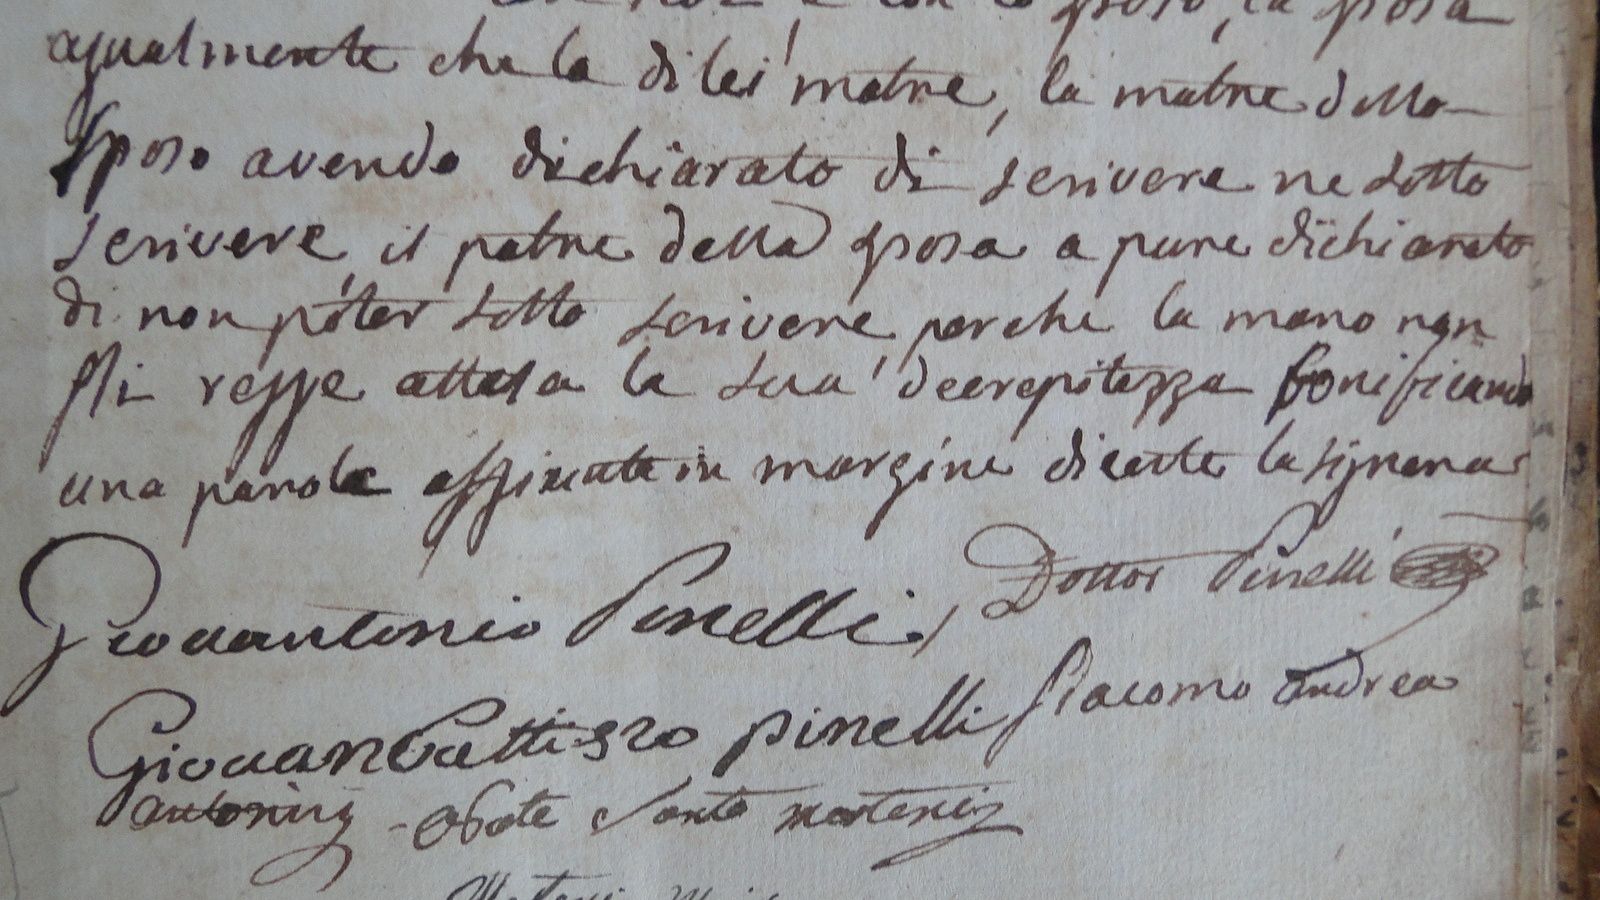 con lo sposo, la sposa
agualmente che la di lei matre, la matre dello
sposo avendo dichiarato di scrivere ne sotto
scrivere, il patre della sposa a pure dichiarato
di non poter sotto scrivere perche la mano non
gli regge attesa la sua decrepitezza bonificando
una parola in margine dicente la signora
Giovantonio Pinelli, Dottor Pinelli
Giovanbattista pinelli Giacomo andrea
antonini abate Santo